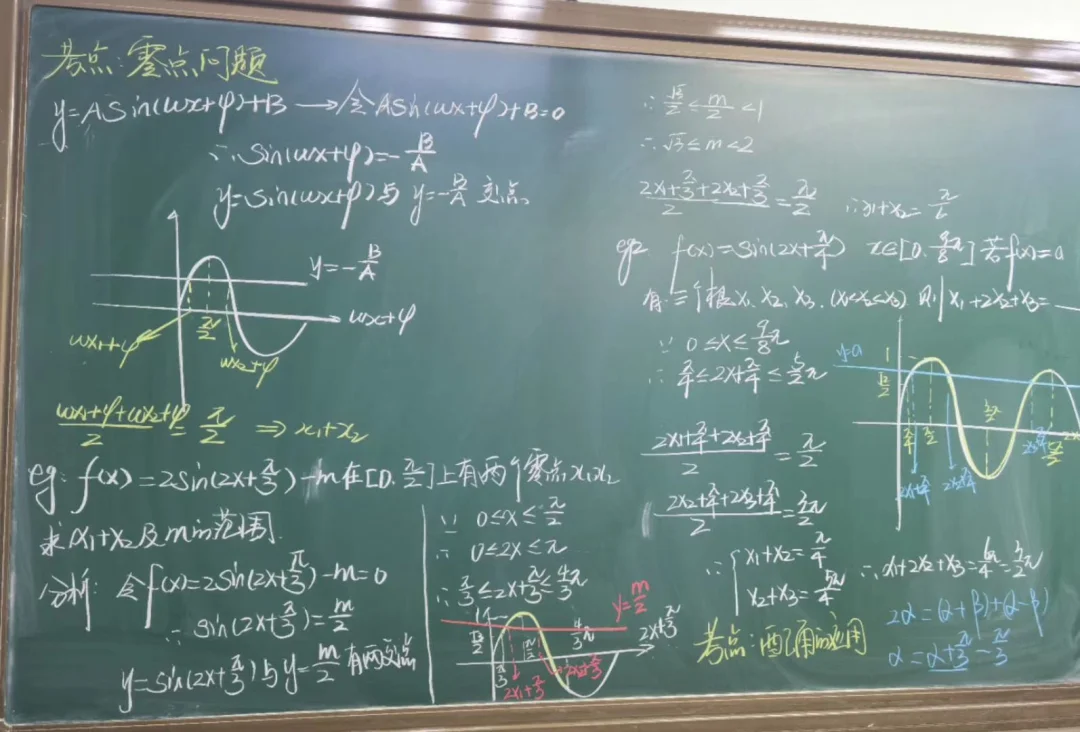 考点:零点问题
y=Asin(ωx+φ)+B → 令Asin(ωx+φ)+B=0
∴sin(ωx+φ)=-B/A
y=sin(ωx+φ)与 y=-B/A 交点
y=-B/A
ωx+φ
π/2
ωx1+φ
ωx2+φ
(ωx1+φ+ωx2+φ)/2=π/2 ⇒ x1+x2
eg: f(x)=2sin(2x+π/3)-m在[0,π/2]上有两个零点x1x2
求x1+x2及m的范围
分析: 令f(x)=2sin(2x+π/3)-m=0
∴ sin(2x+π/3)=m/2
y=sin(2x+π/3)与y=m/2有两交点
∵ 0≤x≤π/2
∴ 0≤2x≤π
∴ π/3≤2x+π/3≤4/3π
y=m/2
1
√3/2
4/3π
2x+π/3
π/3
π/2
2x1+π/3
2x2+π/3
∴ √3/2≤m/2<1
∴ √3≤m<2
(2x1+π/3+2x2+π/3)/2=π/2 ∴x1+x2=π/6
eg2 f(x)=sin(2x+π/4) x∈[0,9/8π]若f(x)=a
有三个根x1,x2,x3,(x1<x2<x3) 则x1+2x2+x3=
∵ 0≤x≤9/8π
∴ π/4≤2x+π/4≤5/2π
y=a
1
√2/2
π/4
π/2
2x1+π/4
2x2+π/4
(2x1+π/4+2x2+π/4)/2=π/2
(2x2+π/4+2x3+π/4)/2=3/2π
∴ { x1+x2=π/4
x2+x3=5π/4
∴x1+2x2+x3=6π/4=3/2π
考点:配角的应用
2α=(α+β)+(α-β)
α=α+π/3-π/3